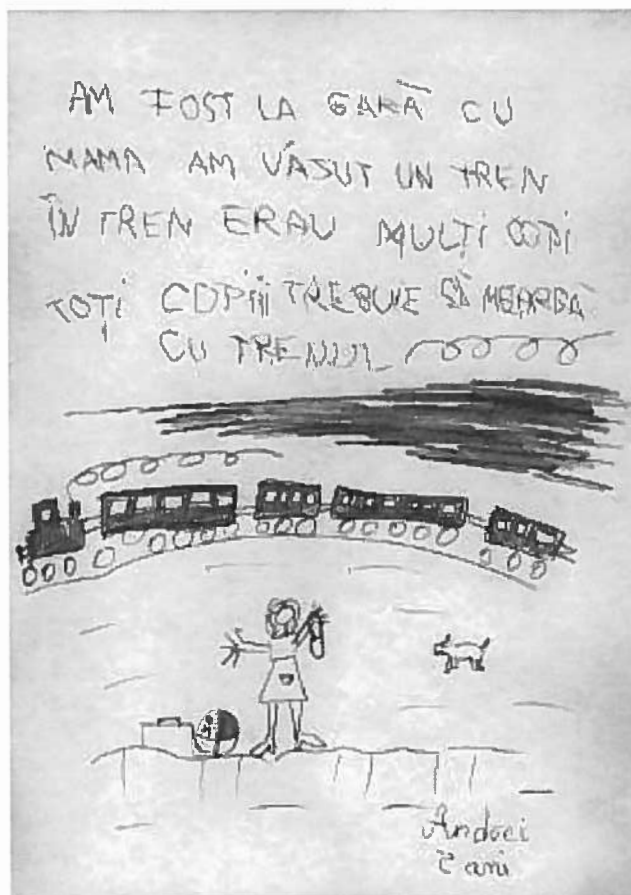 AM FOST LA GARĂ CU
MAMA AM VĂSUT UN TREN
ÎN TREN ERAU MULȚI COPI
TOȚI COPIII TREBUIE SĂ MEARGĂ
CU TRENUL
Andrei
ani